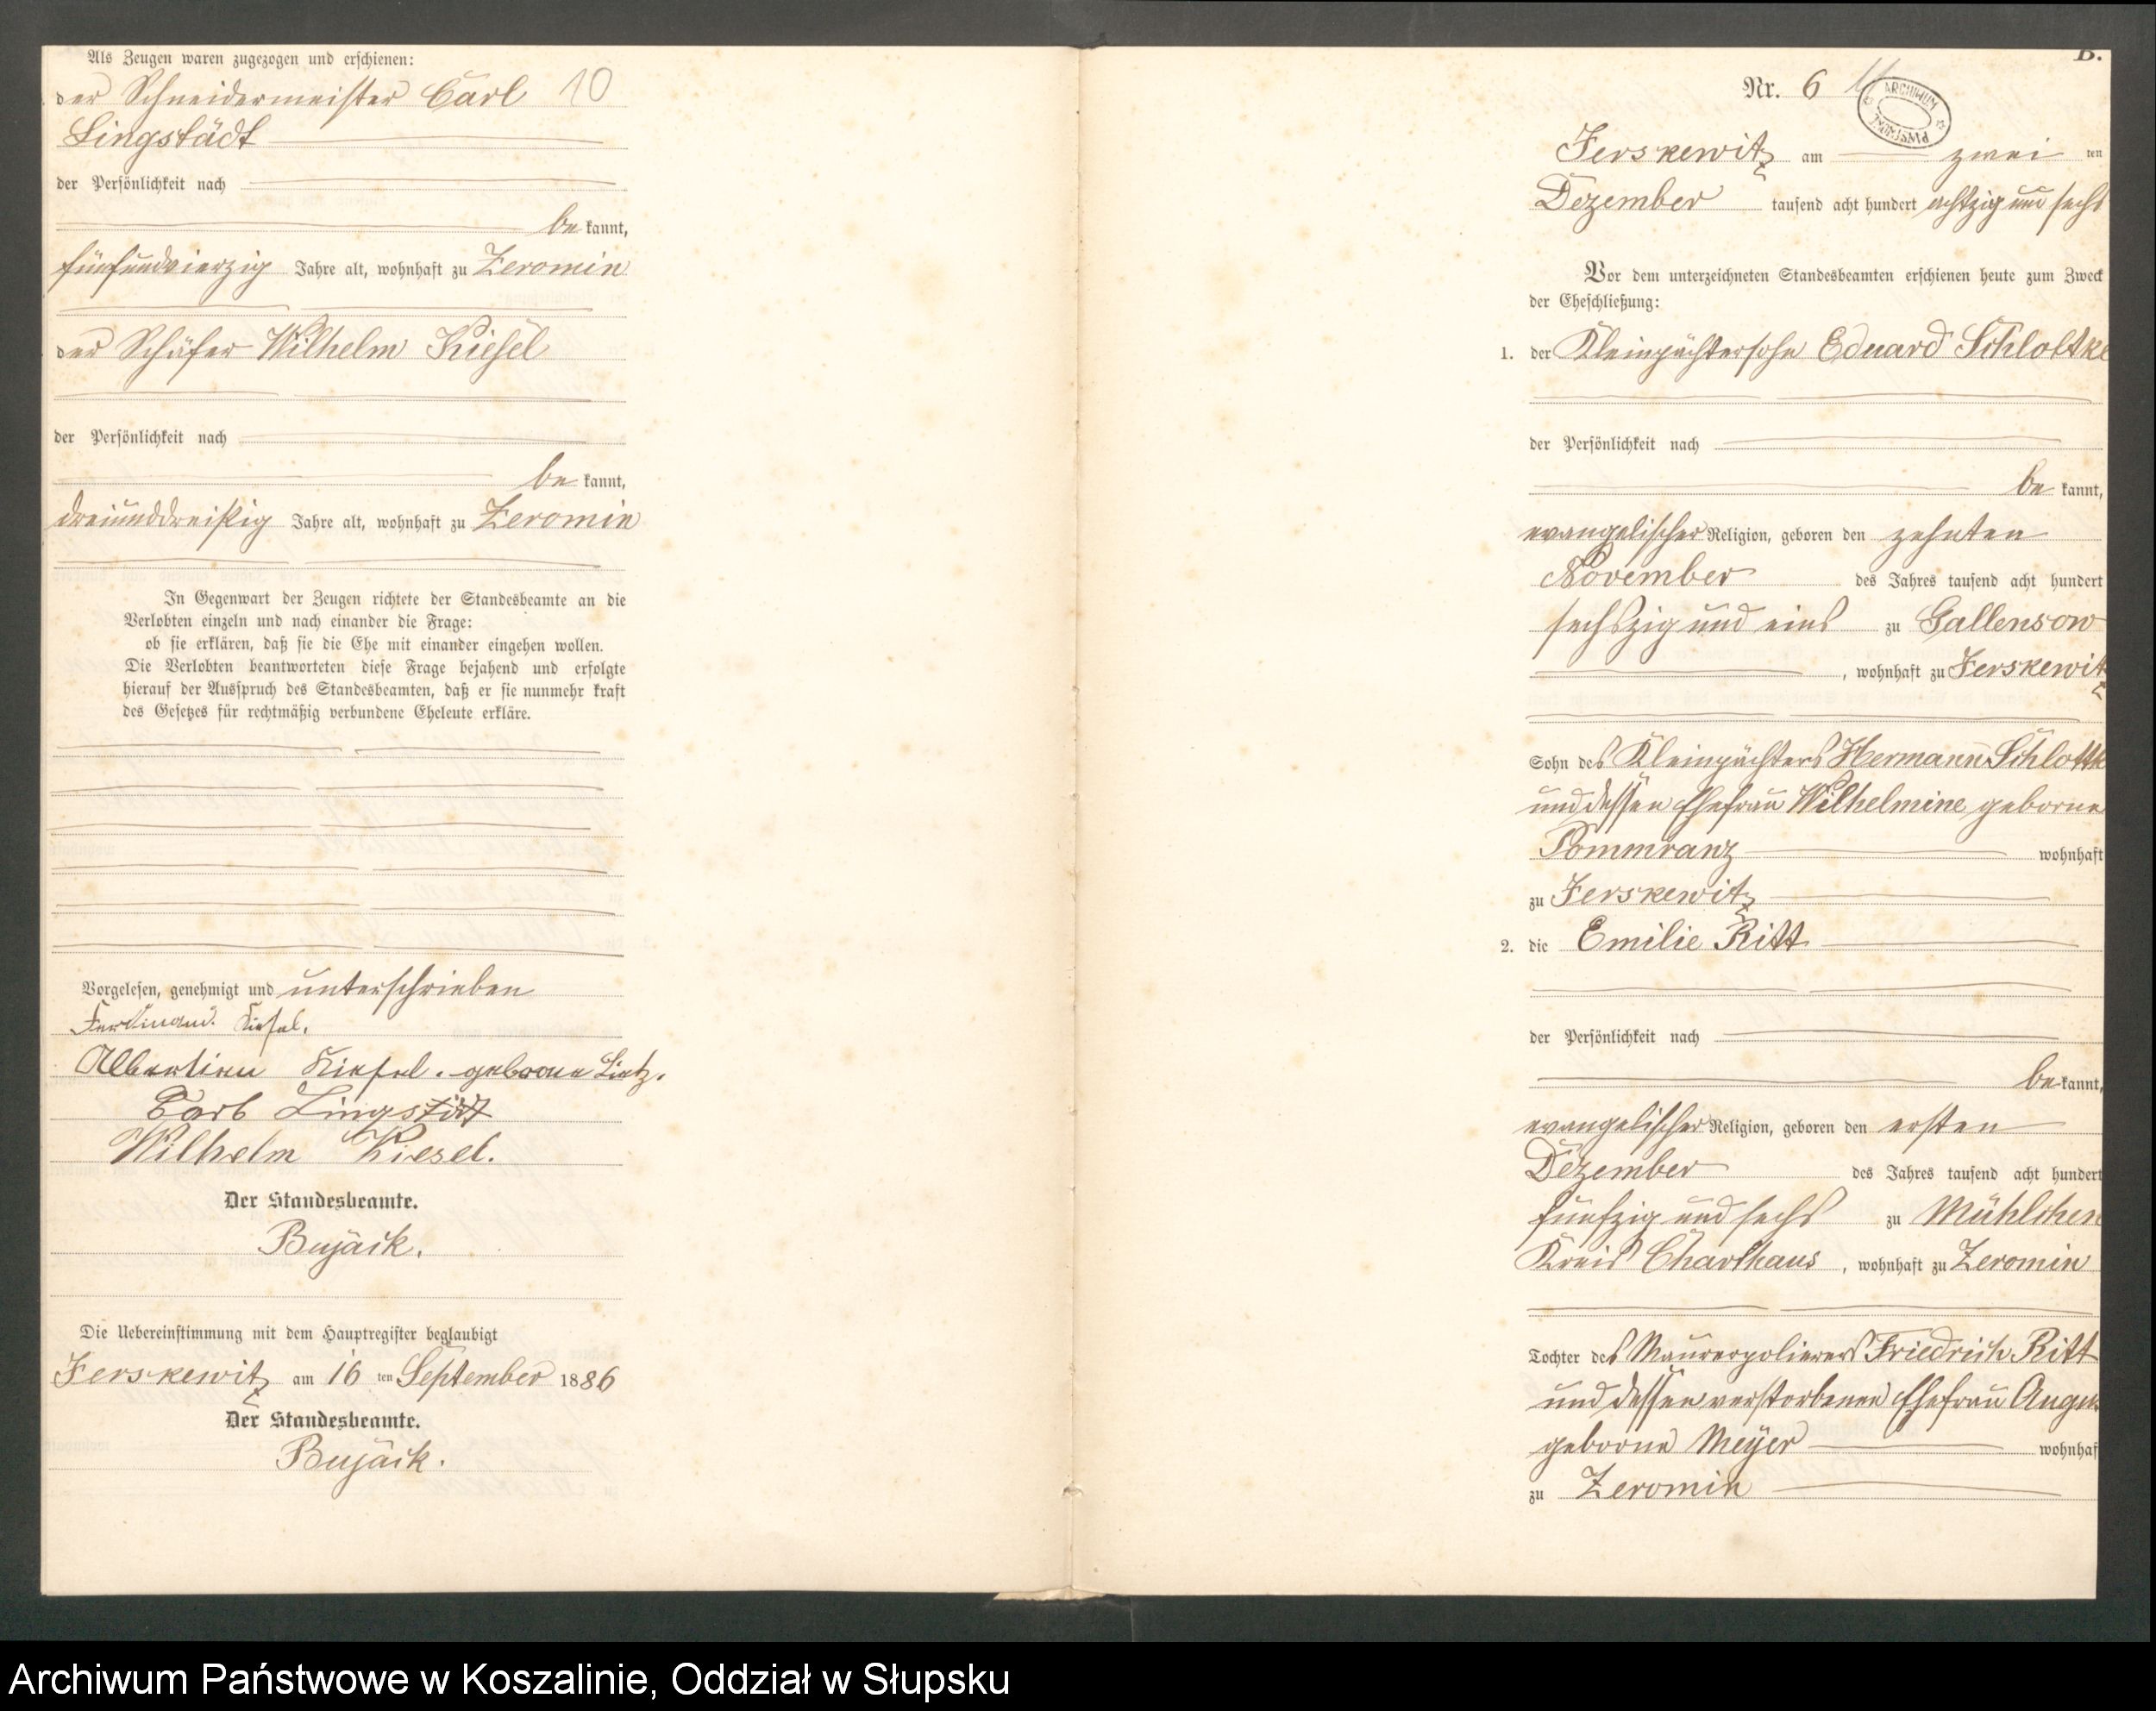 Als Zeugen waren zugezogen und erschienen:
der Schneidermeister Carl 10
Lingstädt
der Persönlichkeit nach
be kannt,
fünfundvierzig Jahre alt, wohnhaft zu Zeromin
der Schäfer Wilhelm Kiesel
der Persönlichkeit nach
be kannt,
dreiunddreißig Jahre alt, wohnhaft zu Zeromin
In Gegenwart der Zeugen richtete der Standesbeamte an die
Verlobten einzeln und nach einander die Frage:
ob sie erklären, daß sie die Ehe mit einander eingehen wollen.
Die Verlobten beantworteten diese Frage bejahend und erfolgte
hierauf der Ausspruch des Standesbeamten, daß er sie nunmehr kraft
des Gesetzes für rechtmäßig verbundene Eheleute erkläre.
Vorgelesen, genehmigt und unterschrieben
Ferdinand Kiesel.
Albertine Kiesel. geborne Lietz.
Carl Lingstädt
Wilhelm Kiesel.
Der Standesbeamte.
Bujack.
Die Uebereinstimmung mit dem Hauptregister beglaubigt
Jerskewitz am 16 ten September 1886
Der Standesbeamte.
Bujack.
B.
Nr. 6 11
ARCHIWUM PAŃSTWOWE
Jerskewitz am zwei ten
Dezember tausend acht hundert achtzig und sechs
Vor dem unterzeichneten Standesbeamten erschienen heute zum Zweck
der Eheschließung:
1. der Kleinpächtersohn Eduard Schlottke
der Persönlichkeit nach
be kannt,
evangelischer Religion, geboren den zehnten
November des Jahres tausend acht hundert
sechszig und eins zu Gallensow
, wohnhaft zu Jerskewitz
Sohn des Kleinpächters Hermann Schlottk
und dessen Ehefrau Wilhelmine geborne
Pommranz wohnhaft
zu Jerskewitz
2. die Emilie Ritt
der Persönlichkeit nach
be kannt,
evangelischer Religion, geboren den ersten
Dezember des Jahres tausend acht hundert
fünfzig und sechs zu Mühlchen
Kreis Charthaus, wohnhaft zu Zeromin
Tochter des Maurerpolierers Friedrich Ritt
und dessen verstorbenen Ehefrau Augus
geborne Meyer wohnhaf
zu Zeromin
Archiwum Państwowe w Koszalinie, Oddział w Słupsku